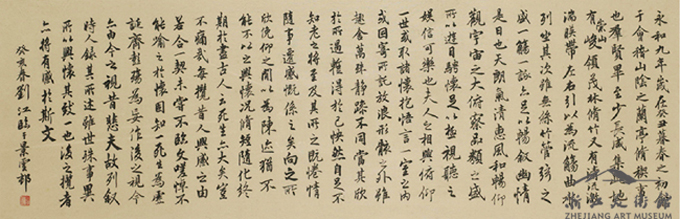 永和九年歲在癸丑暮春之初會
于會稽山陰之蘭亭脩禊事
也羣賢畢至少長咸集此地
有崇峻領茂林脩竹又有清流激
湍暎帶左右引以為流觴曲水
列坐其次雖無絲竹管弦之
盛一觴一詠亦足以暢敘幽情
是日也天朗氣清惠風和暢仰
觀宇宙之大俯察品類之盛
所以遊目騁懷足以極視聽之
娛信可樂也夫人之相與俯仰
一世或取諸懷抱悟言一室之內
或因寄所託放浪形骸之外雖
趣舍萬殊靜躁不同當其欣
於所遇暫得於己怏然自足不
知老之將至及其所之既倦情
隨事遷感慨係之矣向之所
欣俛仰之間以為陳迹猶不
能不以之興懷況脩短隨化終
期於盡古人云死生亦大矣豈
不痛哉每攬昔人興感之由
若合一契未嘗不臨文嗟悼不
能喻之於懷固知一死生為虛
誕齊彭殤為妄作後之視今
亦由今之視昔悲夫故列敘
時人錄其所述雖世殊事異
所以興懷其致一也後之攬者
亦將有感於斯文
癸亥春劉江臨於景雲邨
ZHEJIANG ART MUSEUM